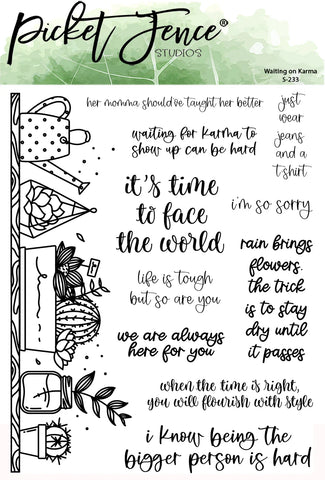 Picket Fence®
STUDIOS
Waiting on Karma
S-233
her momma should've taught her better
just
wear
jeans
and a
t-shirt
waiting for karma to
show up can be hard
it's time
to face
the world
i'm so sorry
life is tough
but so are you
rain brings
flowers.
the trick
is to stay
dry until
it passes
we are always
here for you
when the time is right,
you will flourish with style
i know being the
bigger person is hard